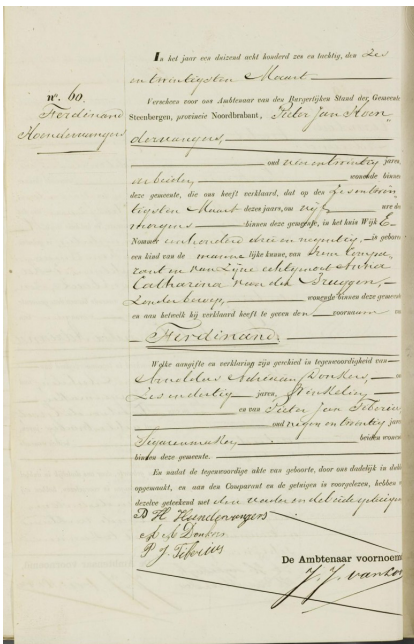 In het jaar een duizend acht honderd zes en tachtig, den zes
en twintigsten Maart
n°. 60.
Ferdinand
Hoendervangers
Verscheen voor ons Ambtenaar van den Burgerlijken Stand der Gemeente
Steenbergen, provincie Noordbrabant, Pieter Jan Hoen
dervangers,
oud vier en twintig jaren,
arbeider, wonende binnen
deze gemeente, die ons heeft verklaard, dat op den zes en twin
tigsten Maart dezes jaars, om vijf ure des
morgens binnen deze gemeente, in het huis Wijk E
Nommer een honderd drie en negentig, is geboren
een kind van de mannelijke kunne, van hem Compa
rant en van zijne echtgenoot Anna
Catharina van der Bruggen,
zonder beroep, wonende binnen deze gemeente
en aan hetwelk hij verklaard heeft te geven den voornaam
Ferdinand.
Welke aangifte en verklaring zijn geschied in tegenwoordigheid van
Arnoldus Adriaan Donkers,
zes en dertig jaren, Winkelier
en van Pieter Jan Tiborius
oud negen en twintig jaren
Sigarenmaker, beiden wonende
binnen deze gemeente.
En nadat de tegenwoordige akte van geboorte, door ons dadelijk in
opgemaakt, en aan den Comparant en de getuigen is voorgelezen, hebben
dezelve geteekend met den vader en de beide getuigen
P H Hoendervangers
A A Donkers
P J Tiborius
De Ambtenaar voornoemd
J. J. van